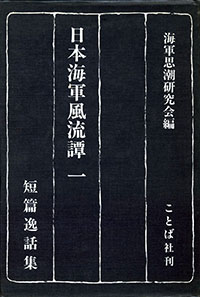 海軍思潮研究会編
日本海軍風流譚 一
短篇逸話集
ことば社刊